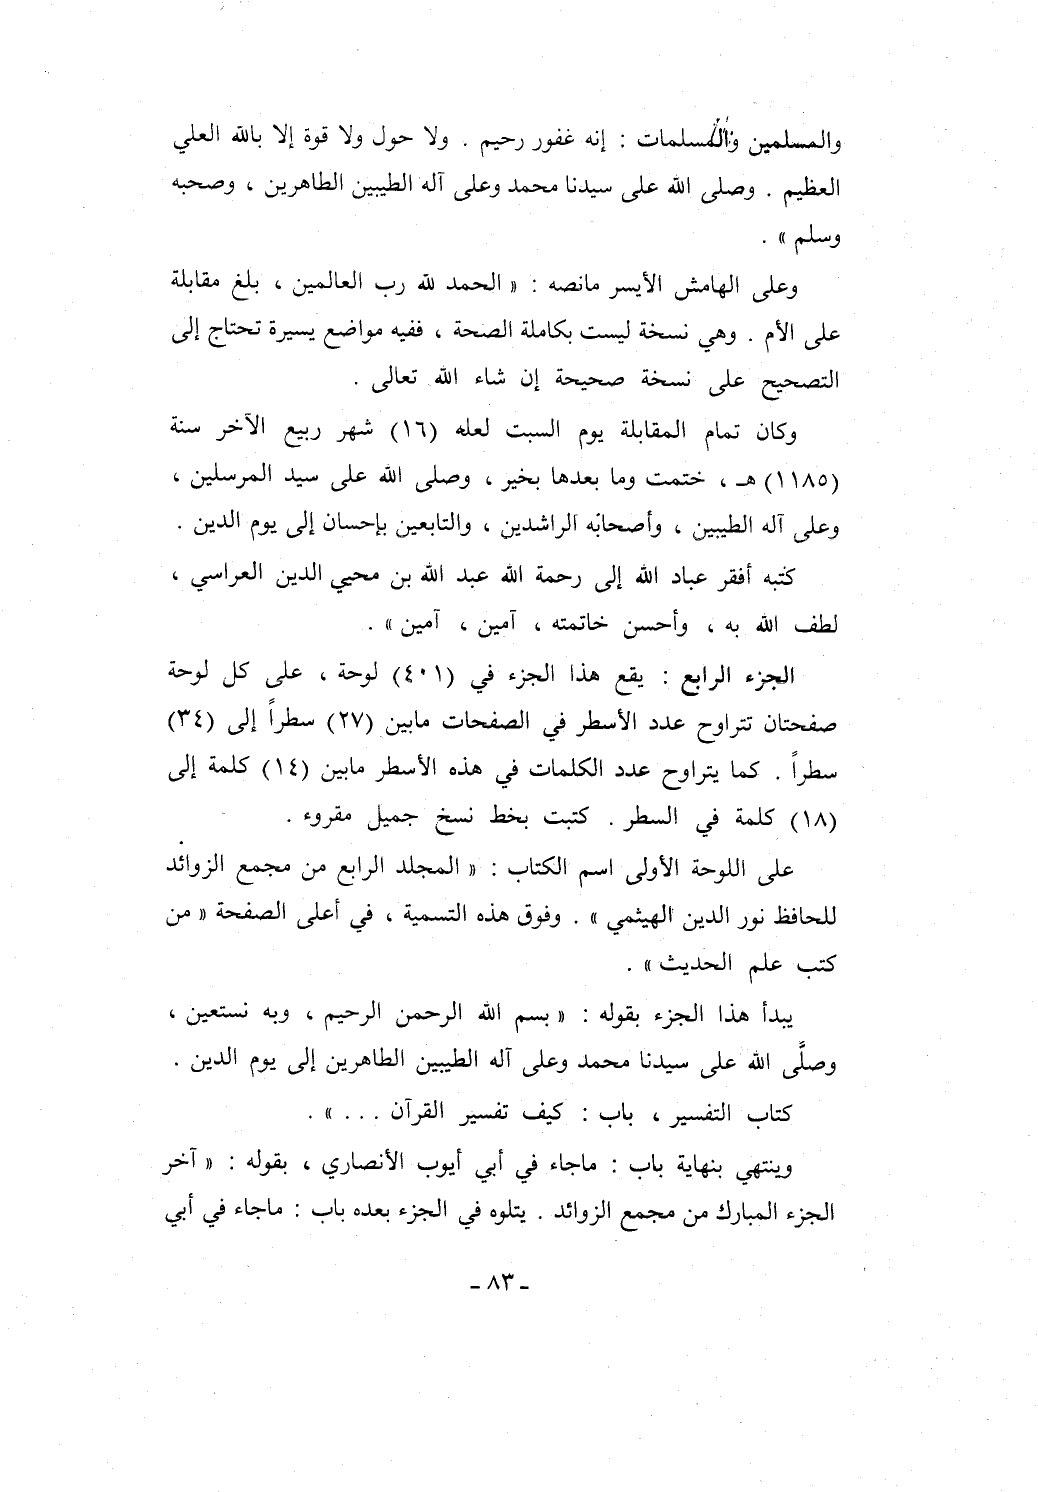 والمسلمين والمسلمات : إنه غفور رحيم . ولا حول ولا قوة إلا بالله العلي
العظيم . وصلى الله على سيدنا محمد وعلى آله الطيبين الطاهرين ، وصحبه
وسلم » .
وعلى الهامش الأيسر مانصه : « الحمد لله رب العالمين ، بلغ مقابلة
على الأم . وهي نسخة ليست بكاملة الصحة ، ففيه مواضع يسيرة تحتاج إلى
التصحيح على نسخة صحيحة إن شاء الله تعالى .
وكان تمام المقابلة يوم السبت لعله (١٦) شهر ربيع الآخر سنة
(١١٨٥) هـ ، ختمت وما بعدها بخير ، وصلى الله على سيد المرسلين ،
وعلى آله الطيبين ، وأصحابه الراشدين ، والتابعين بإحسان إلى يوم الدين .
كتبه أفقر عباد الله إلى رحمة الله عبد الله بن محيي الدين العراسي ،
لطف الله به ، وأحسن خاتمته ، آمين ، آمين » .
الجزء الرابع : يقع هذا الجزء في (٤٠١) لوحة ، على كل لوحة
صفحتان تتراوح عدد الأسطر في الصفحات مابين (٢٧) سطراً إلى (٣٤)
سطراً . كما يتراوح عدد الكلمات في هذه الأسطر مابين (١٤) كلمة إلى
(١٨) كلمة في السطر . كتبت بخط نسخ جميل مقروء .
على اللوحة الأولى اسم الكتاب : « المجلد الرابع من مجمع الزوائد
للحافظ نور الدين الهيثمي » . وفوق هذه التسمية ، في أعلى الصفحة « من
كتب علم الحديث » .
يبدأ هذا الجزء بقوله : « بسم الله الرحمن الرحيم ، وبه نستعين ،
وصلَّى الله على سيدنا محمد وعلى آله الطيبين الطاهرين إلى يوم الدين .
كتاب التفسير ، باب : كيف تفسير القرآن . . . » .
وينتهي بنهاية باب : ماجاء في أبي أيوب الأنصاري ، بقوله : « آخر
الجزء المبارك من مجمع الزوائد . يتلوه في الجزء بعده باب : ماجاء في أبي
ـ ٨٣ ـ